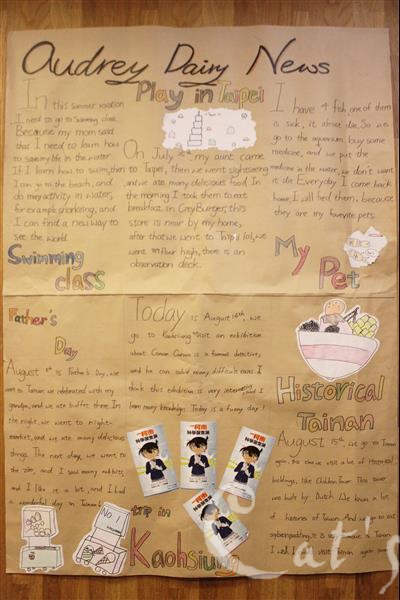 Audrey Dairy News
In this summer vacation
I need to go to Swimming class.
Because my mom said
that I need to learn how
to save my life in the water.
If I learn how to swim, then
I can go to the beach, and
do many activity in water,
for example snorkeling, and
I can find a new way to
see the world.
Swimming
class
Play in Taipei
On July my aunt came
to Taipei, then we went sightseeing
and we ate many delicious food. In
the morning I took them to eat
breakfast in Grey Burger, this
store is near by my home,
after that we went to Taipei 101, we
went floor high, there is an
observation deck.
I have 4 fish, one of them
is sick, it almost die. So we
go to the aquarium buy some
medicine, and we put the
medicine in the water, we don't want
it die. Everyday I come back
home, I will feed them, because
they are my favorite pets.
My
Pet
Father's
Day
August 8th is Father's Day, we
went to Tainan we celebrated with my
grandpa, and we ate buffet there. In
the night, we went to night-
market, and we ate many delicious
things. The next day, we went to
the zoo, and I saw many rabbits,
and I like it a lot, and I had
a wonderful day in Tainan!
Today is August 14th, we
go to Kaohsiung visit an exhibition
about Conan. Conan is a famous detective,
and he can solve many difficult cases. I
think this exhibition is very interesting, and I
learn many knowledge. Today is a funny day!
柯南
柯南
柯南
No.1
trip in
Kaohsiung
Historical
Tainan
August 15th, we go to Tainan
again, this time we visit a lot of Historical
buildings, like Chihkan Tower. This tower
was built by Dutch. We know a lot
of histories of Tainan. And we go to eat
I wish I can visit Tainan again soon.
Kat's